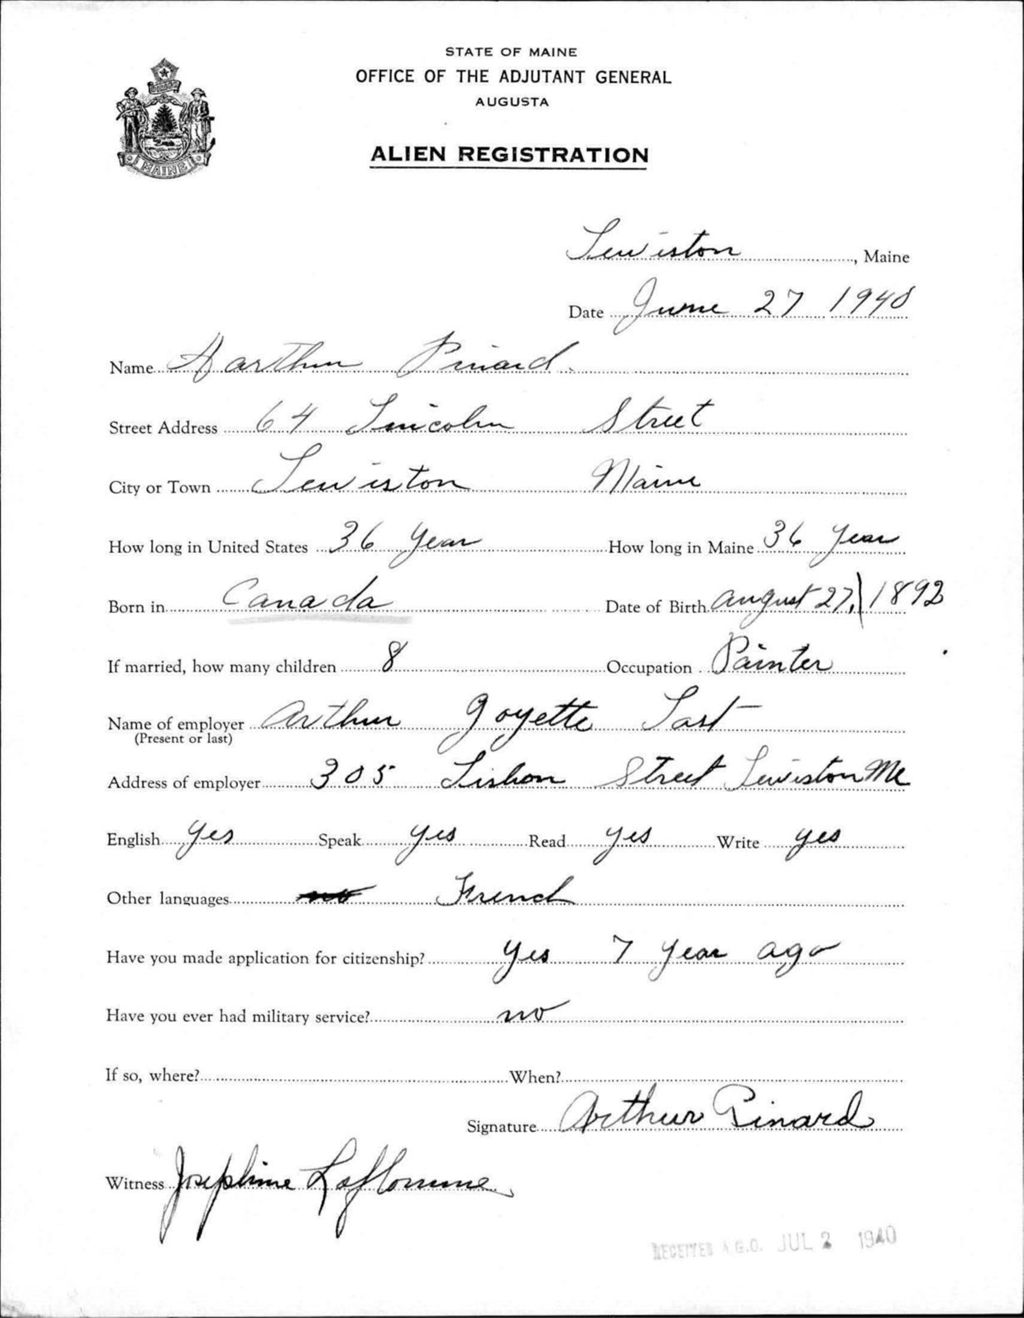 STATE OF MAINE
OFFICE OF THE ADJUTANT GENERAL
AUGUSTA
ALIEN REGISTRATION
MAINE
Lewiston, Maine
Date June 27 1940
Name Aarthur Pinard.
Street Address 64 Lincoln Street
City or Town Lewiston Maine
How long in United States 36 Year How long in Maine 36 Year
Born in Canada Date of Birth August 27, 1892
If married, how many children 8 Occupation Painter
Name of employer Arthur Goyette Last
(Present or last)
Address of employer 305 Lisbon Street Lewiston Me
English yes Speak yes Read yes Write yes
Other languages no French
Have you made application for citizenship? yes 7 year ago
Have you ever had military service? no
If so, where? When?
Signature Arthur Pinard
Witness Josephine Laflomme
RECEIVED A.G.O. JUL 2 1940